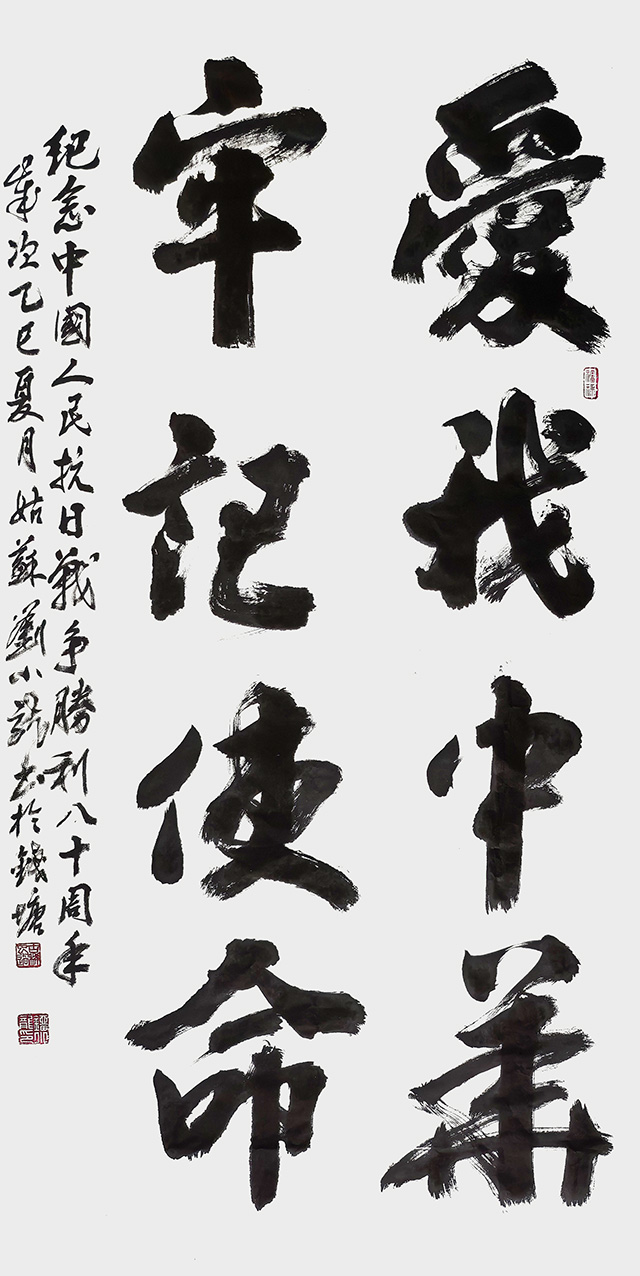 愛我中華
牢記使命
紀念中國人民抗日戰争勝利八十周年
歲次乙巳夏月姑蘇劉小龍書於錢塘